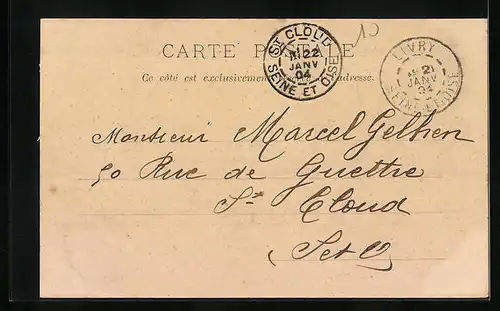 10
CARTE POSTALE
Ce côté est exclusivement réservé à l'adresse.
ST CLOUD
22
JANV
04
SEINE ET OISE
LIVRY
21
JANV
04
SEINE-ET-OISE
Monsieur Marcel Gelhen
50 Rue de Guettre
St Cloud
S et O